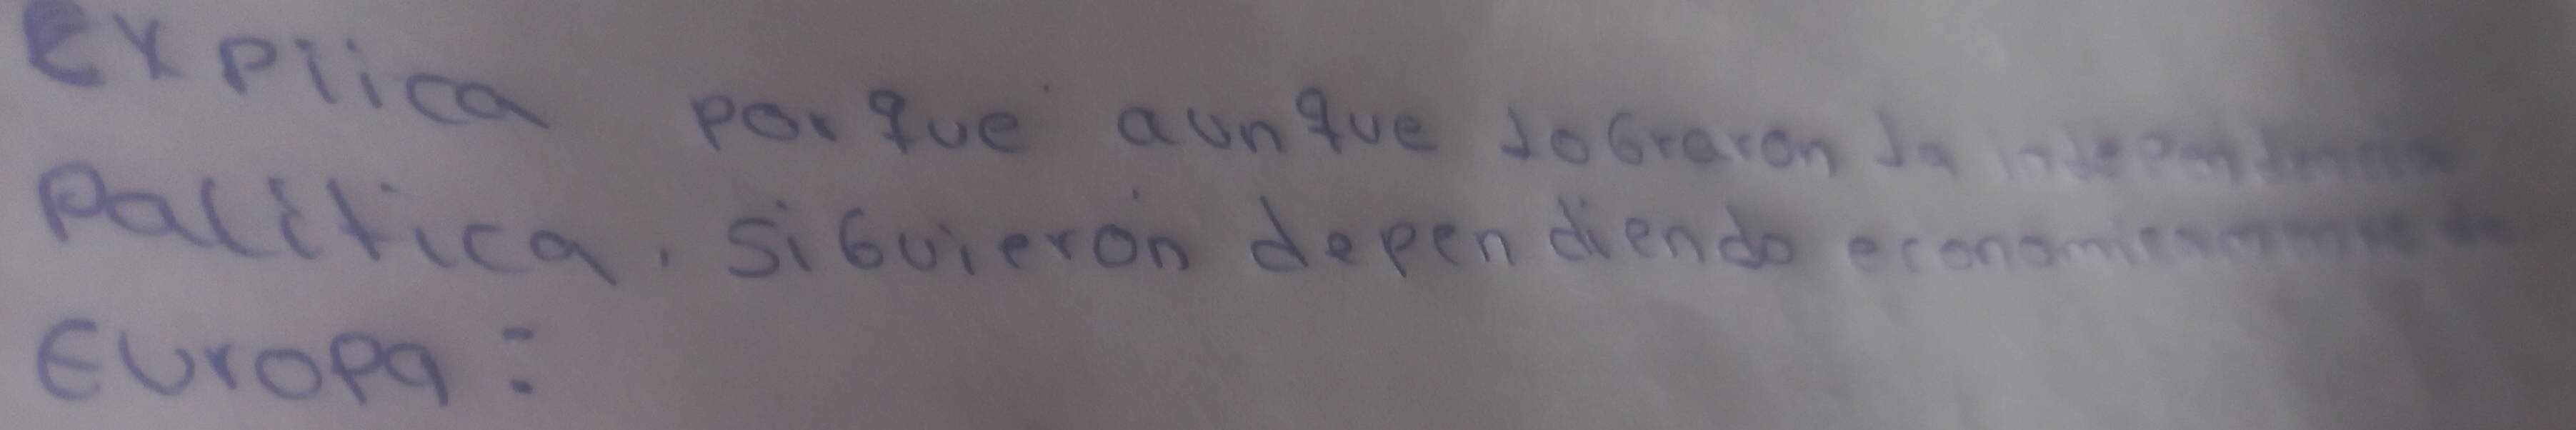 Explica porque aunque lograron la independencia
Palítica, siguierón dependiendo economicamente de
Europa: